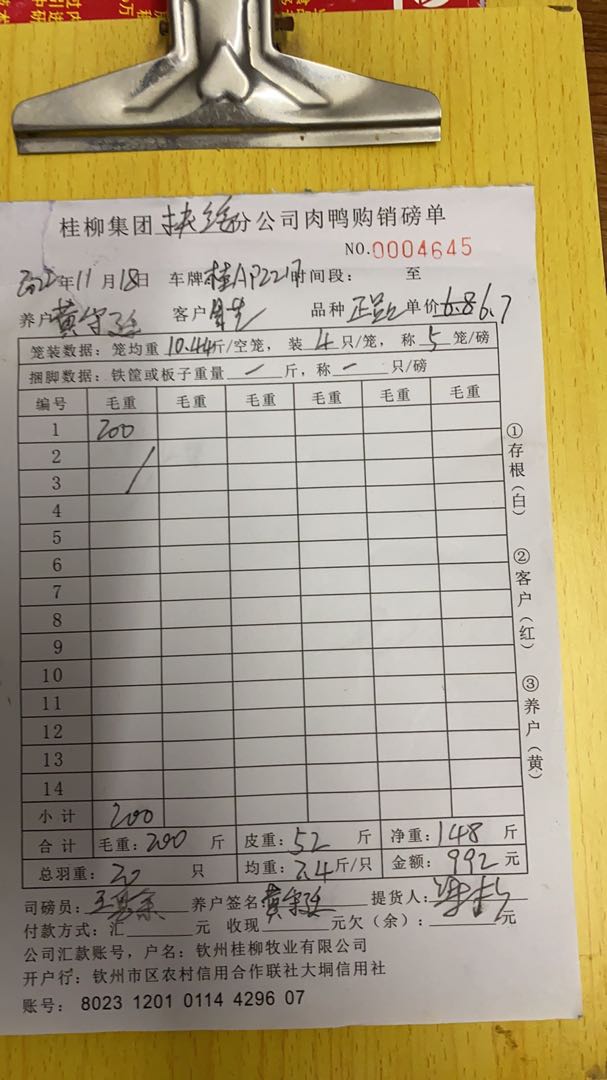 桂柳集团扶绥分公司肉鸭购销磅单
NO.0004645
2022年11月18日 车牌桂AP221 时间段: 至
养户 黄守 客户 品种 正品 单价 6.8 6.7
笼装数据: 笼均重 10.44斤/空笼, 装 4 只/笼, 称 5 笼/磅
捆脚数据: 铁筐或板子重量 一 斤, 称 一 只/磅
编号 毛重 毛重 毛重 毛重 毛重 毛重
1 200
2 /
3
4
5
6
7
8
9
10
11
12
13
14
小计 200
合计 毛重: 200 斤 皮重: 52 斤 净重: 148 斤
总羽重: 20 只 均重: 7.4斤/只 金额: 992 元
①存根(白)
②客户(红)
③养户(黄)
司磅员: 养户签名: 黄守 提货人:
付款方式: 汇 元 收现 元欠(余): 元
公司汇款账号, 户名: 钦州桂柳牧业有限公司
开户行: 钦州市区农村信用合作联社大垌信用社
账号: 8023 1201 0114 4296 07